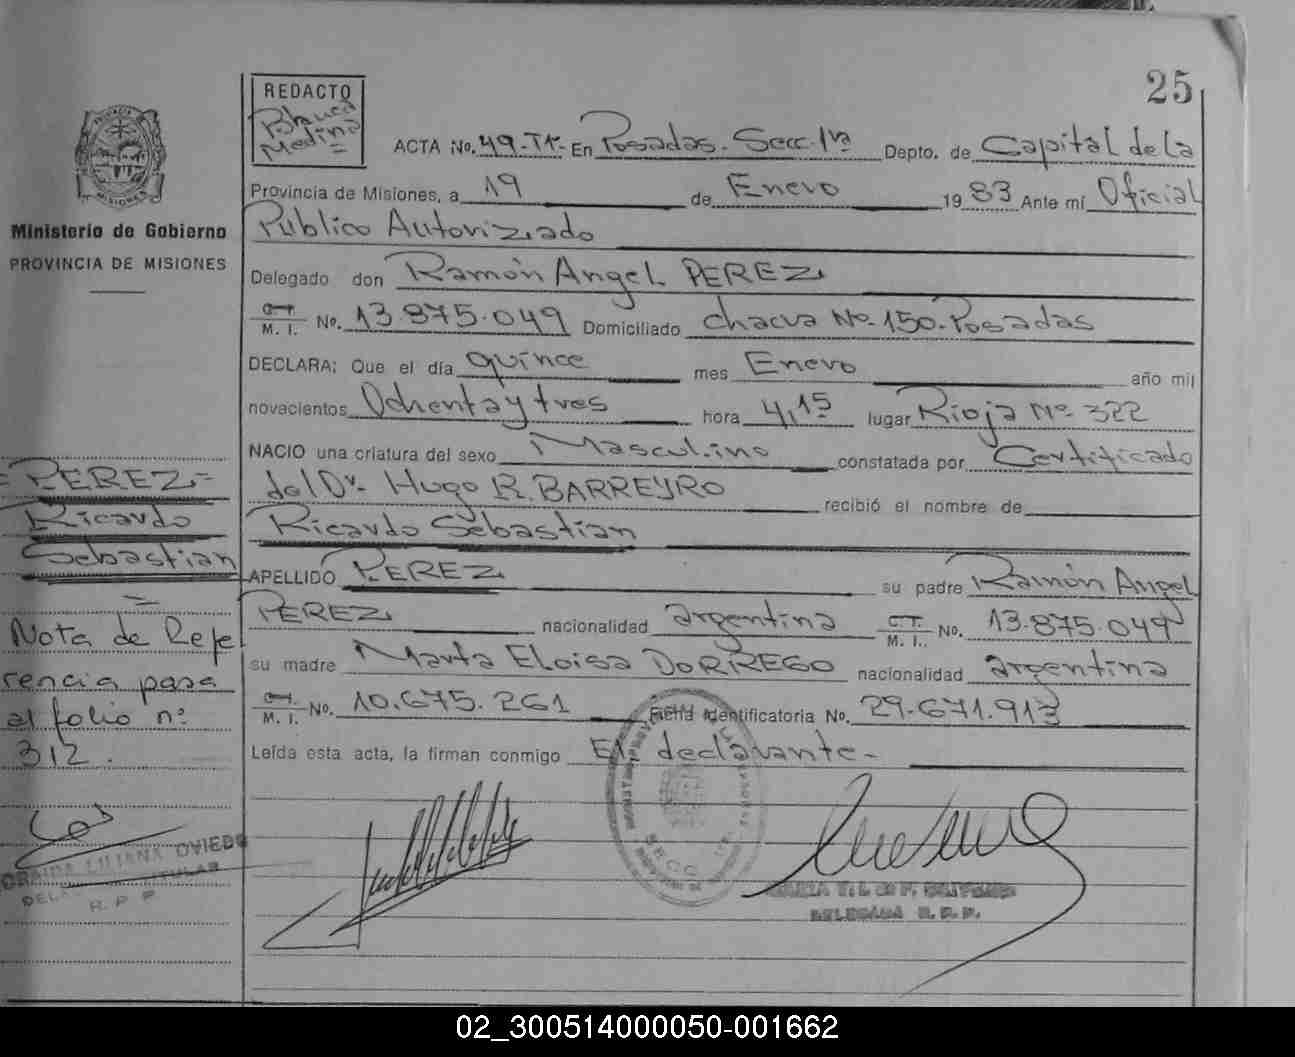 25
REDACTO
Blanca
Medina
=
ACTA No. 49-T1- En Posadas. Secc. 1ra Depto. de Capital de la
Provincia de Misiones, a 19 de Enero 1983 Ante mí Oficial
Publico Autorizado
Delegado don Ramón Angel PEREZ
C.I. M. I. No. 13.875.049 Domiciliado chacra Nº. 150. Posadas
DECLARA: Que el día quince mes Enero año mil
novecientos Ochenta y tres hora 4,15 lugar Rioja Nº. 322
NACIO una criatura del sexo Masculino constatada por Certificado
del Dr. Hugo R. BARREYRO recibió el nombre de
Ricardo Sebastian
APELLIDO PEREZ su padre Ramón Angel
PEREZ nacionalidad argentina C.I. M. I. No. 13.875.049
su madre Marta Eloisa DORREGO nacionalidad argentina
C.I. M. I. No. 10.675.261 Ficha Identificatoria No. 29.671.913
Leída esta acta, la firman conmigo El declarante-
Ministerio de Gobierno
PROVINCIA DE MISIONES
= PEREZ =
Ricardo
Sebastian
=
Nota de Refe
rencia pasa
al folio nº
312.
LILIANA OVIEDO
TITULAR
R. P. P.
DELEGADA R. P. P.
02_300514000050-001662